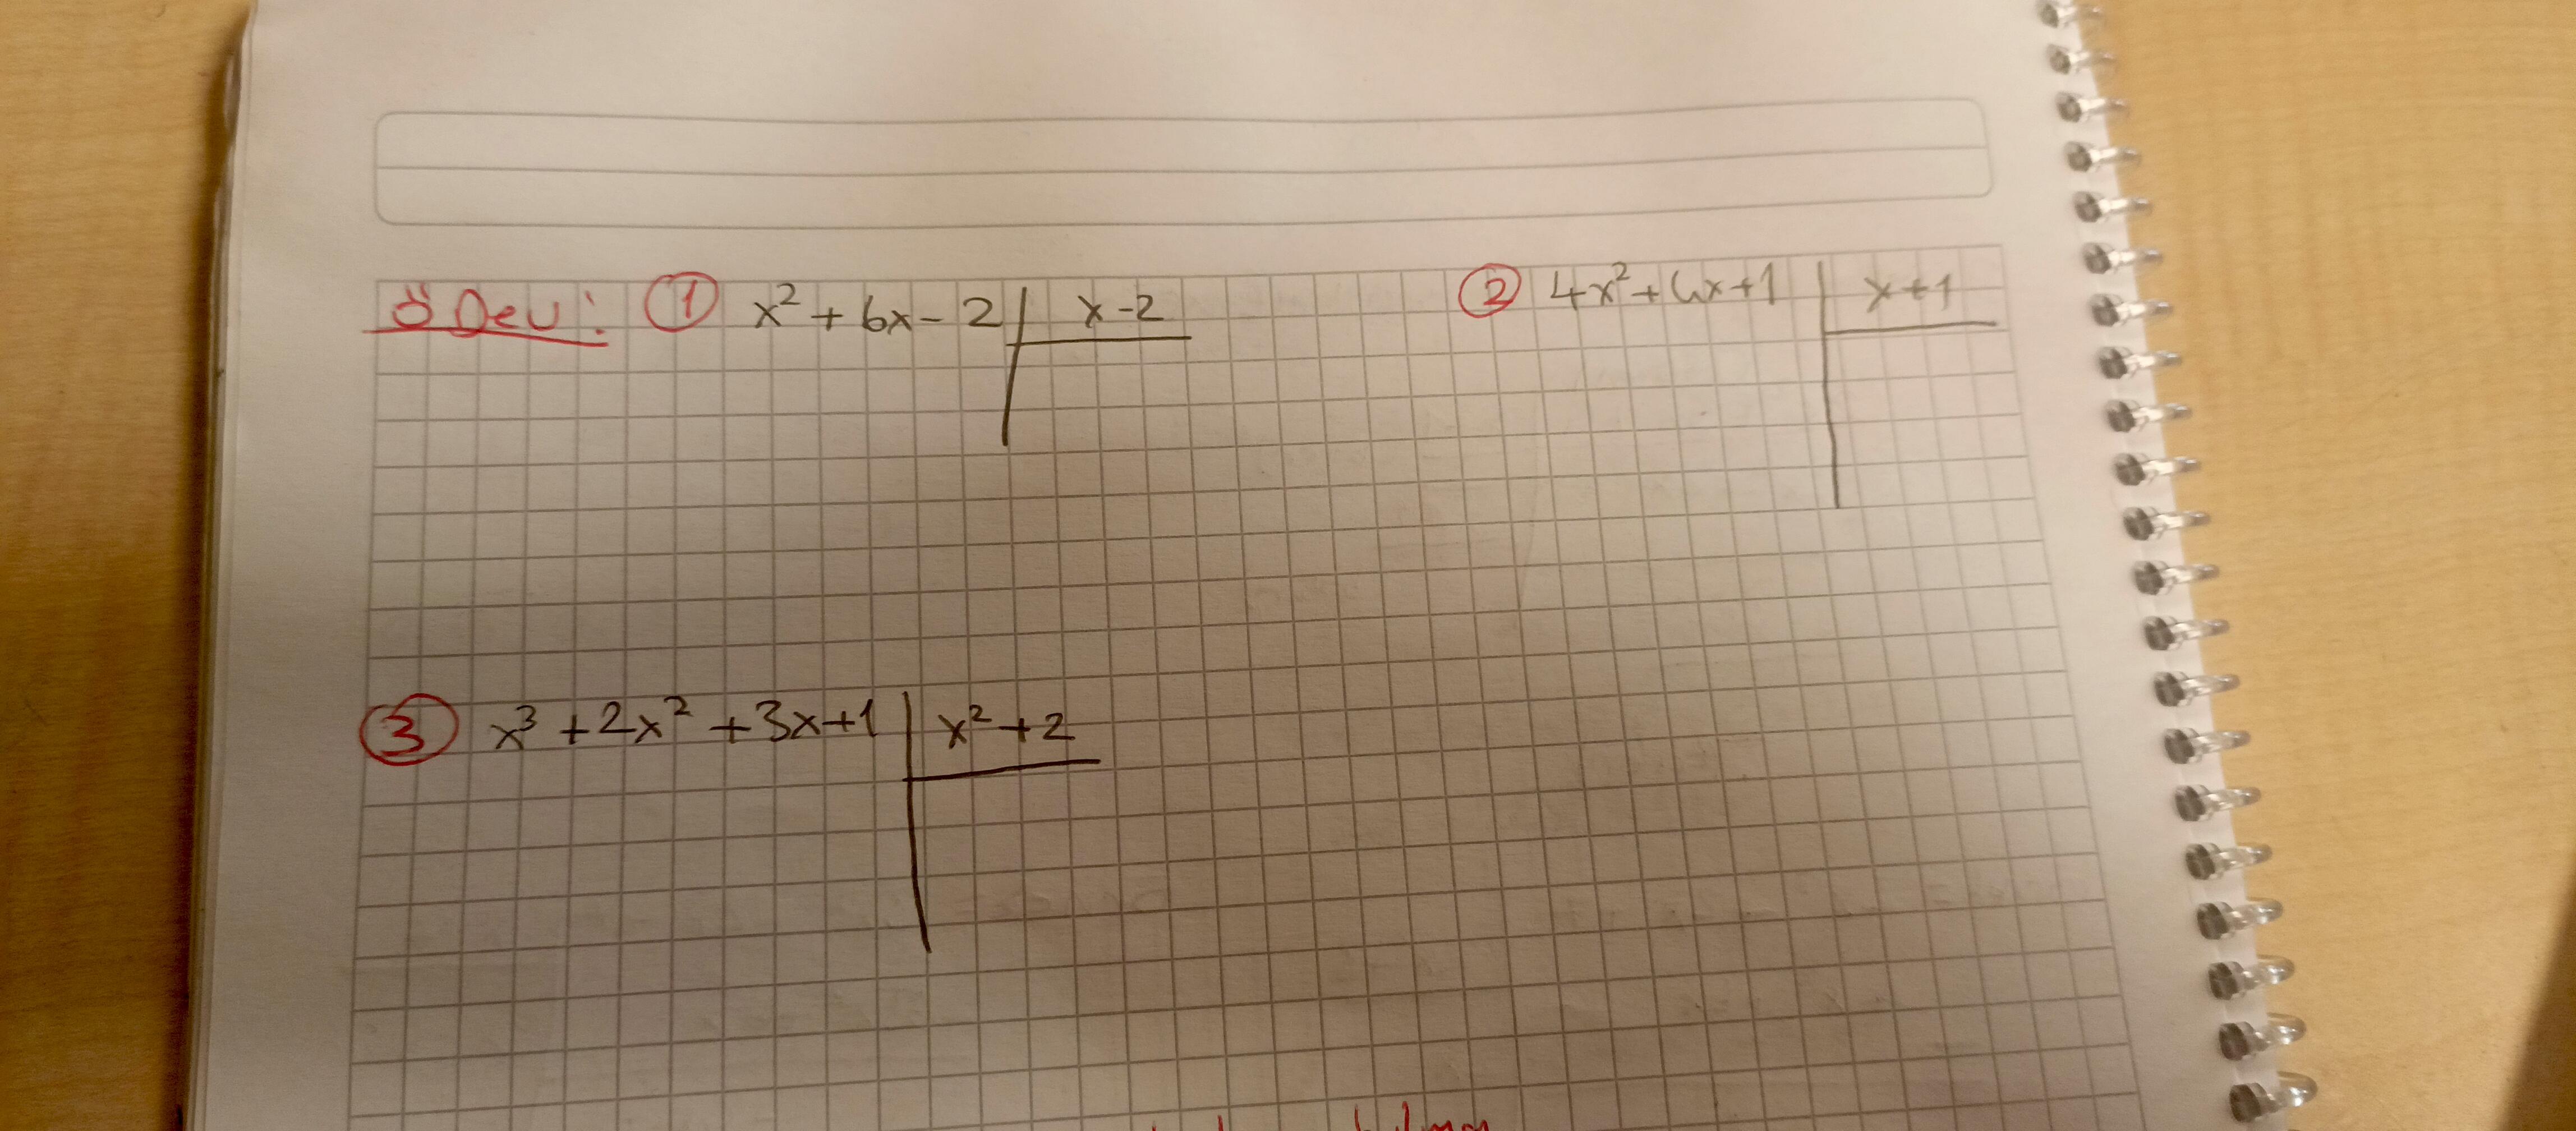 ödev: ① x² + 6x - 2 | x - 2
② 4x² + 4x + 1 | x + 1
③ x³ + 2x² + 3x + 1 | x² + 2